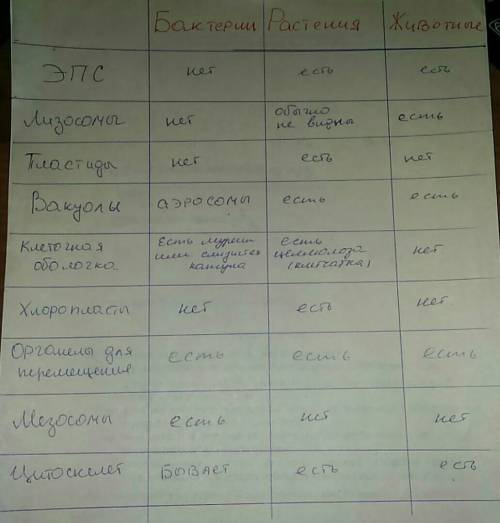 Бактерии Растения Животные
ЭПС нет есть есть
Лизосомы нет обычно не видны есть
Пластиды нет есть нет
Вакуолы аэросомы есть есть
Клеточная оболочка есть муреин или слизистая капсула есть целлюлоза (клетчатка) нет
Хлоропласты нет есть нет
Органелы для перемещения есть есть есть
Мезосомы есть нет нет
Цитоскелет бывает есть есть